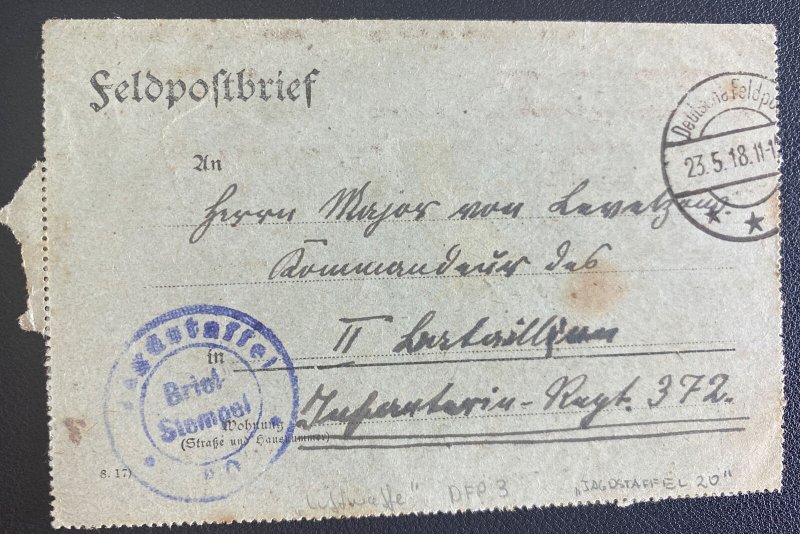 Feldpostbrief
Deutsche Feldpo
23.5.18.11-1
An
Herrn Major von Levetzow.
Kommandeur des
II Bataillon
in
Infanterie-Regt. 372.
Jagdstaffel
Brief
Stempel
20
Wohnung
(Straße und Hausnummer)
8. 17)
"Luftwaffe" DFP 3 „JAGDSTAFFEL 20"